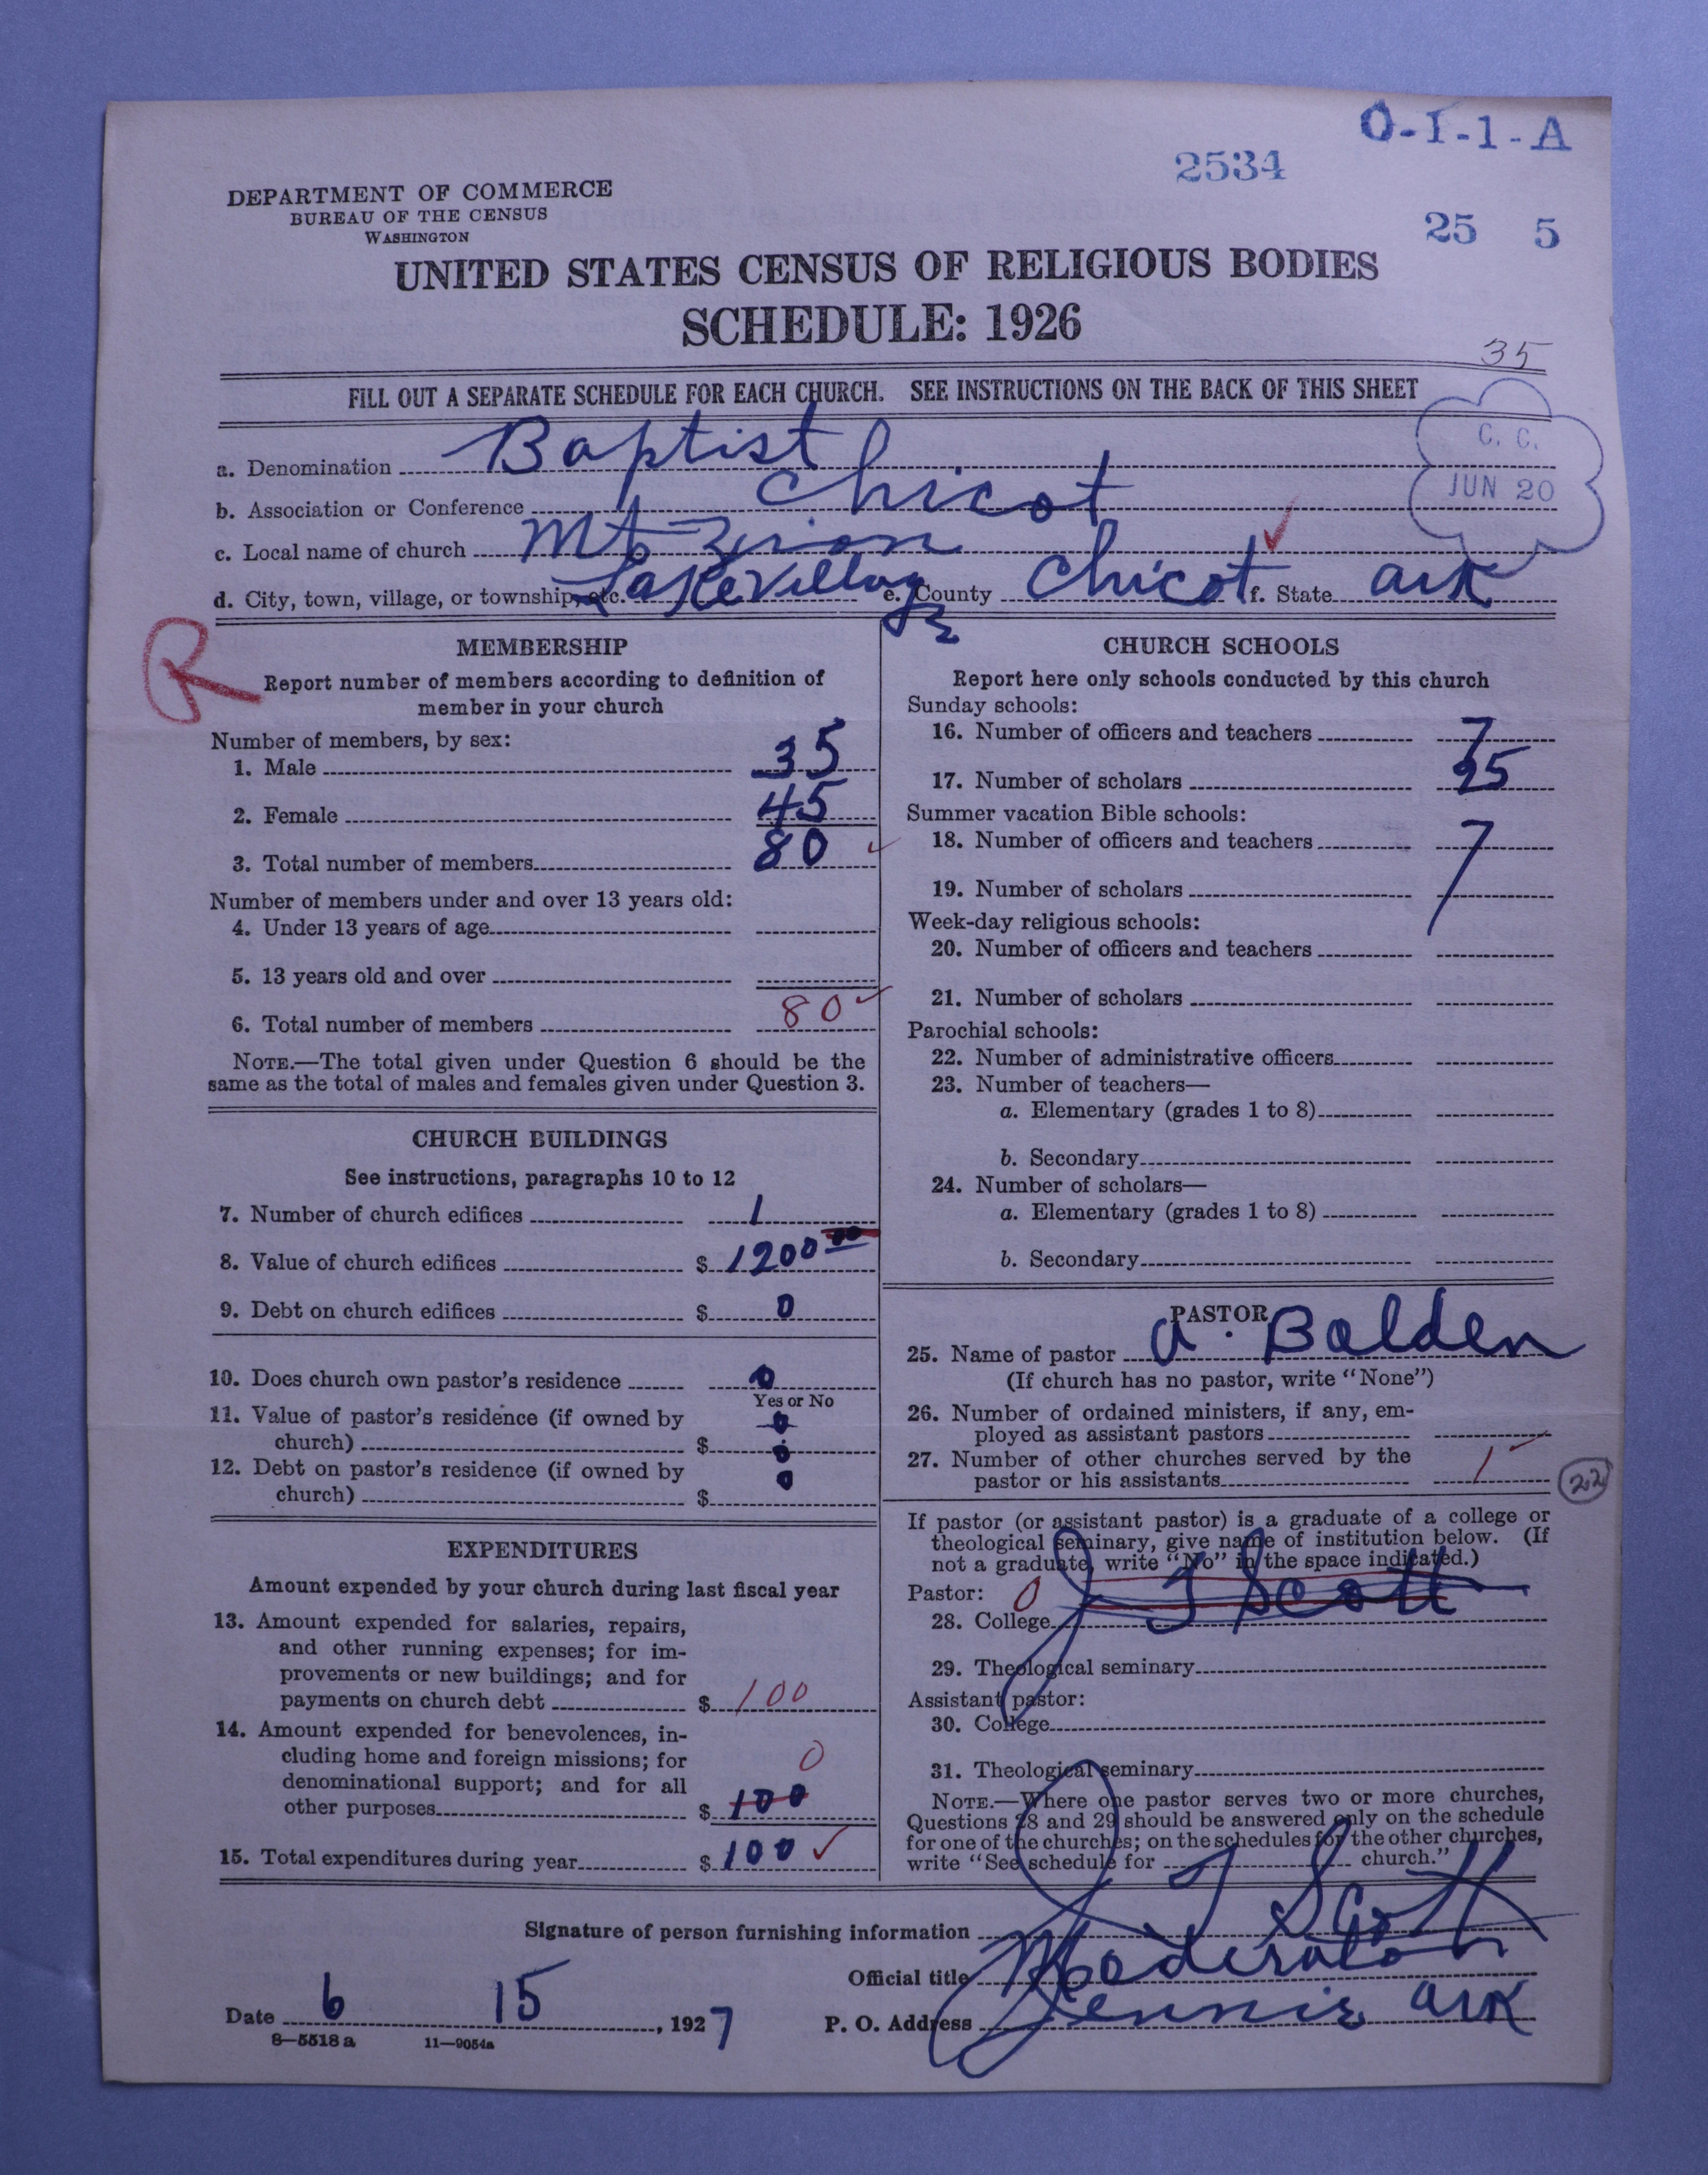 O-I-1-A
2534
DEPARTMENT OF COMMERCE
BUREAU OF THE CENSUS
WASHINGTON
25 5
UNITED STATES CENSUS OF RELIGIOUS BODIES
SCHEDULE: 1926
35
FILL OUT A SEPARATE SCHEDULE FOR EACH CHURCH. SEE INSTRUCTIONS ON THE BACK OF THIS SHEET
C. C.
JUN 20
a. Denomination Baptist
b. Association or Conference Chicot
c. Local name of church Mt Zion
d. City, town, village, or township, etc. Lake Village e. County Chicot f. State Ark
R
MEMBERSHIP
Report number of members according to definition of
member in your church
Number of members, by sex:
1. Male 35
2. Female 45
3. Total number of members 80
Number of members under and over 13 years old:
4. Under 13 years of age
5. 13 years old and over
6. Total number of members 80
NOTE.—The total given under Question 6 should be the
same as the total of males and females given under Question 3.
CHURCH BUILDINGS
See instructions, paragraphs 10 to 12
7. Number of church edifices 1
8. Value of church edifices $ 1200 00
9. Debt on church edifices $ 0
10. Does church own pastor's residence 0
Yes or No
11. Value of pastor's residence (if owned by 0
church) $ 0
12. Debt on pastor's residence (if owned by 0
church) $
EXPENDITURES
Amount expended by your church during last fiscal year
13. Amount expended for salaries, repairs,
and other running expenses; for im-
provements or new buildings; and for
payments on church debt $ 100
14. Amount expended for benevolences, in-
cluding home and foreign missions; for 0
denominational support; and for all
other purposes $ 100
15. Total expenditures during year $ 100
CHURCH SCHOOLS
Report here only schools conducted by this church
Sunday schools:
16. Number of officers and teachers 7
17. Number of scholars 25
Summer vacation Bible schools:
18. Number of officers and teachers 7
19. Number of scholars
Week-day religious schools:
20. Number of officers and teachers
21. Number of scholars
Parochial schools:
22. Number of administrative officers
23. Number of teachers—
a. Elementary (grades 1 to 8)
b. Secondary
24. Number of scholars—
a. Elementary (grades 1 to 8)
b. Secondary
PASTOR
25. Name of pastor A. Bolden
(If church has no pastor, write "None")
26. Number of ordained ministers, if any, em-
ployed as assistant pastors
27. Number of other churches served by the
pastor or his assistants 1
22
If pastor (or assistant pastor) is a graduate of a college or
theological seminary, give name of institution below. (If
not a graduate, write "No" in the space indicated.)
Pastor: 0
28. College J T Scott
29. Theological seminary
Assistant pastor:
30. College
31. Theological seminary
NOTE.—Where one pastor serves two or more churches,
Questions 28 and 29 should be answered only on the schedule
for one of the churches; on the schedules for the other churches,
write "See schedule for church."
Signature of person furnishing information J T Scott
Official title Moderator
Date 6 15, 1927 P. O. Address Jennie Ark
8—5518 a 11—9054a